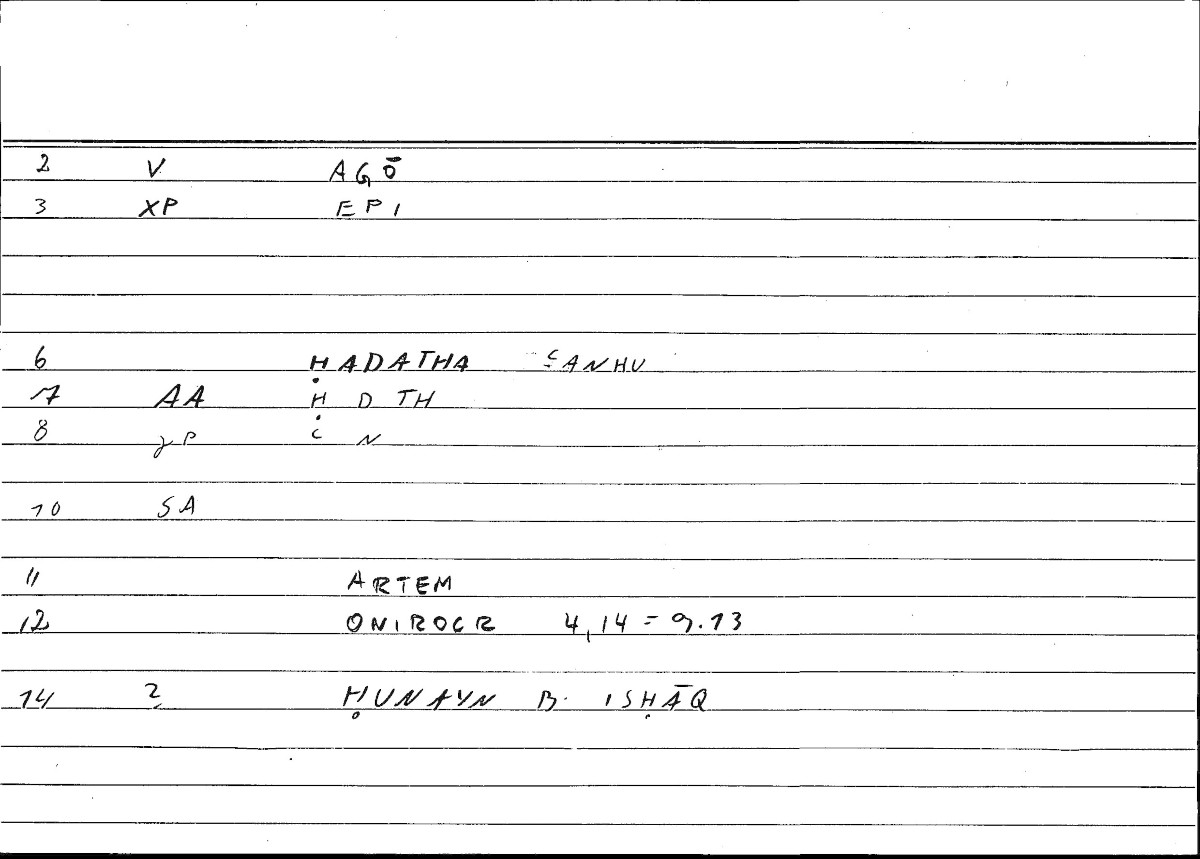 2 V AGŌ
3 XP EPI
6 ḤADATHA ʿANHU
7 AA Ḥ D TH
8 yP ʿ N
10 SA
11 ARTEM
12 ONIROCR 4,14 = 9.13
14 2 ḤUNAYN B. ISḤĀQ